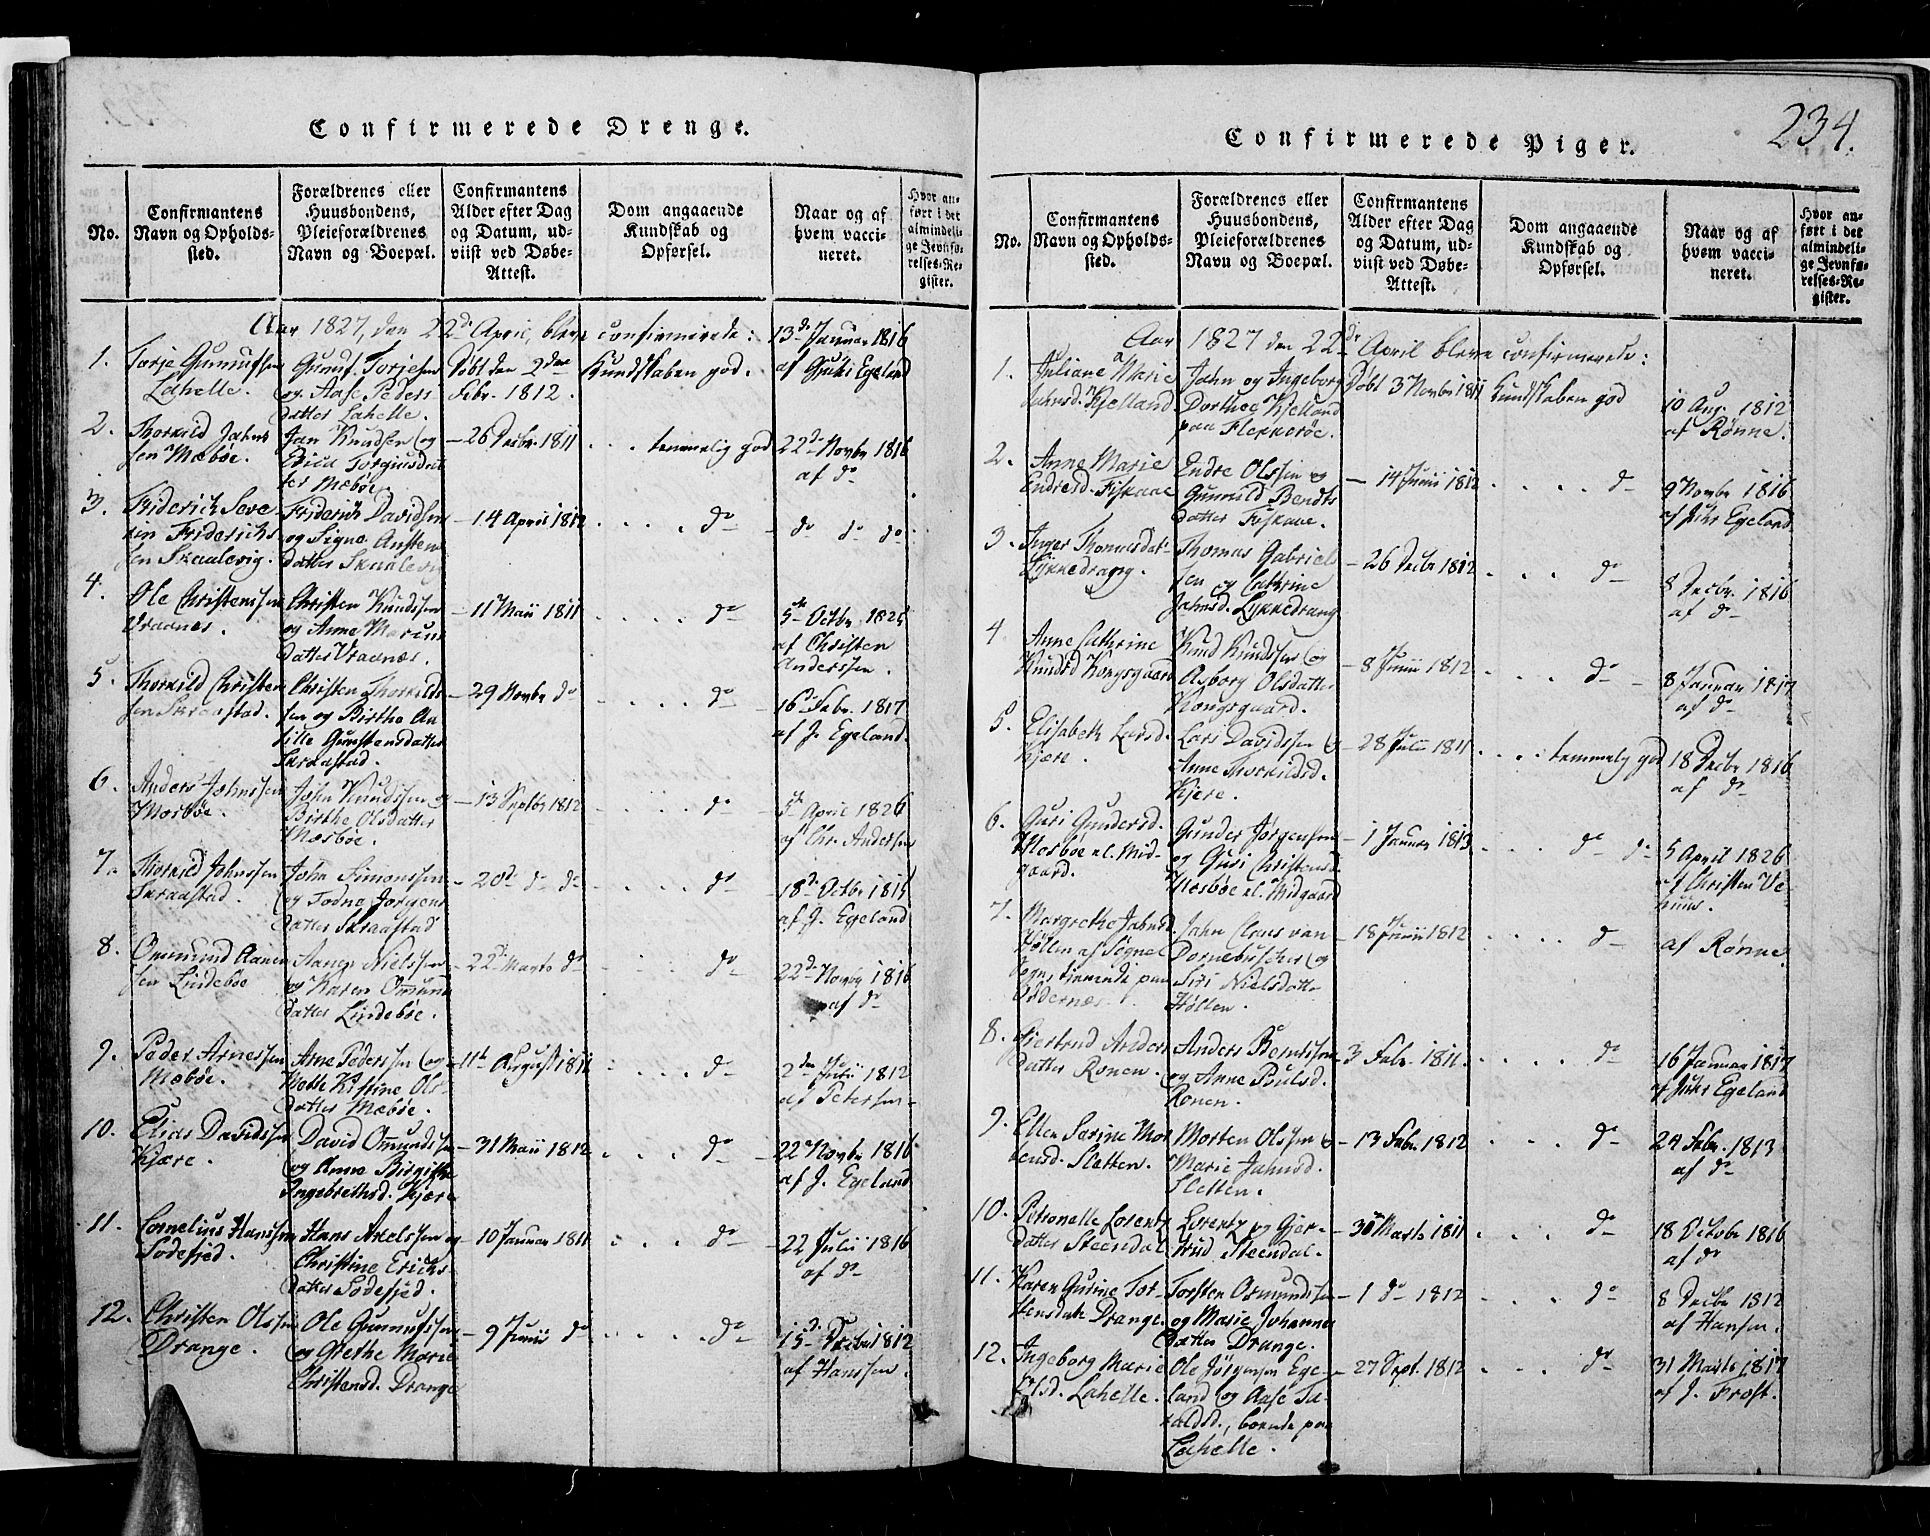 Confirmerede Drenge.
No.
Confirmantens
Navn og Opholds-
sted.
Forældrenes eller
Huusbondens,
Pleieforældrenes
Navn og Boepæl.
Confirmantens
Alder efter Dag
og Datum, ud-
viist ved Døbe-
Attest.
Dom angaaende
Kundskab og
Opførsel.
Naar og af
hvem vacci-
neret.
Hvor an-
ført i det
almindeli-
ge Jevnfø-
relses-Re-
gister.
Aar 1827, den 22de April, bleve confirmerede:
1.
Torje Gunnufssen
Lahelle.
Gunuf Torjesen
og Aase Peders
datter Lahelle.
Døbt den 2den
Febr. 1812.
Kundskaben god.
13de Januar 1816
af Guthi Egeland
2.
Thorkild Jahns
sen Mæbøe.
Jan Knudsen og
Ericu Torgiusdat
ter Mæbøe.
- 26 Decbr. 1811
. . temmelig god
22de Novbr 1816
af do
3.
Friderich Seve-
rin Friderichs
sen Skaalevig.
Friderich Davidsen
og Signe Ansten
datter Skaalevig
- 14 April 1812
. . . . do
- do do do
4.
Ole Christenssen
Vraanes.
Christen Knudssen
og Anne
datter Vraanes.
- 11 Maii 1811
. . . . . do
5te Octbr 1825
af Christen
Anderssen.
5.
Thorkild Christen
sen Skraastad.
Christen Thorkilds
sen og Birthe An
tille Gunstensdatter
Skraastad.
- 29 Novbr do
. . . . do
16de Febr. 1817
af J. Egeland.
6.
Anders Johnssen
Mosbøe.
John Knudssen og
Birthe Olsdatter
Mosbøe.
- 13 Septbr 1812
. . . . do
5te April 1826
af Chr. Andersen
7.
Thorkild Johnssen
Skraastad.
John Simonssen
og Todne Jørgens
datter Skraastad
- 20de do do
. . . . do
18de Octbr 1815
af J. Egeland
8.
Omund Aanen
sen Lindebøe
Aanen Nielssen
og Karen Omunds
datter Lindebøe.
- 22de Marts do
. . . do
22de Novbr 1816
af do
9.
Peder Arnessen
Mæbøe.
Arne Pederssen og
Mette Kistine Ols-
datter Mæbøe.
- 11te August 1811
. . . do
2den Julii 1812
af Petersen-
10.
Elias Davidssen
Kjære.
David Omundssen
og Anne Birgitte
Ingebrethsd. Kjære
- 31 Maii 1812
. . . . do
22de Novbr 1816
af J. Egeland
11.
Cornelius Hanssen
Sodefjed.
Hans Axelssen og
Christine Erichs
datter Sodefjed.
- 10 Januar 1811
. . . . do
22 Julii 1816
af do
12.
Christen Olssen
Drange.
Ole Gunnufssen
og Grethe Marie
Christensd. Drange
- 9 Junii do
. . . . do
15de Decbr 1812
af Hanssen.
Confirmerede Piger.
234.
No.
Confirmantens
Navn og Opholds-
sted.
Forældrenes eller
Huusbondens,
Pleieforældrenes
Navn og Boepæl.
Confirmantens
Alder efter Dag
og Datum, ud-
viist ved Døbe-
Attest.
Dom angaaende
Kundskab og
Opførsel.
Naar og af
hvem vacci-
neret.
Hvor an-
ført i det
almindeli-
ge Jevnfø-
relses-Re-
gister.
Aar 1827 den 22de April bleve confirmerede:
1.
Juliane Marie
Jahnsd. Kjelland
Jahn og Ingeborg
Dorthea Kjelland
paa Flekkerøe.
Døbt 3 Novbr 1811
Kundskaben god
10 Aug. 1812
af Rønne.
2.
Anne Marie
Endresd. Fiskaae
Endre Olssen og
Gunuld Bendts
datter Fiskaae.
- 14 Junii 1812
. . . . . do
9 Novbr 1816
af Juhr Egeland
3.
Inger Thomasdatt.
Lykkedrang.
Thomas Gabriels
sen og Cathrine
Jahnsd. Lykkedrang
- 26 Decbr 1812
. . . do
8 Decbr. 1816
af do
4
Anne Cathrine
Knudsd Kongsgaard
Knud Knudssen og
Asborg Olsdatter
Kongsgaard.
- 8 Junii 1812
. . . . do
8 Januar 1817
af do
5.
Elisabeth Larsd.
Kjære.
Lars Davidssen og
Anne Thorkildsd.
Kjere.
- 28 Julii 1811
. . . temmelig god
18 Decbr 1816
af do
6.
Guri Gundersd.
Mosbøe el. Mid-
gaard.
Gunder Jørgenssen
og Guri Christensd.
Mosbøe el. Midgaard
- 1 Januar 1813
. . . do do
5 April 1826
af Christen Ve-
7.
Margrethe Jahnsd.
Høllen af Søgne
Sogn, tienende paa
Oddernæs.
Jahn Claus van
Dornebuscher og
Siri Nielsdatt-
Høllen.
- 18 Junii 1812
. . . . do
af Rønne.
8.
Giertrud Anders
datter Ronen.
Anders Berntssen
og Anne Poulsd.
Ronen.
- 3 Febr. 1811.
. . . . do
16 Januar 1817
af Juhr Egeland
9.
Ellen Serine Mor
tensd. Sletten.
Morten Olssen og
Marie Jahnsd.
Sletten.
- 13 Febr 1812
. . . do
24 Febr. 1813
af do
10.
Petronelle Lorentz
datter Steensdal.
Lorentz og Gjer-
trud Steendal.
- 30 Marts 1811
. . . do
18 Octobr 1816
af do
11.
Karen Gurine Tor-
stensdatt. Drange.
Torsten Osmundssen
og Marie Johanne
datter Drange.
- 1 do 1812
. . . do
8 Decbr 1812
af Hansen.
12.
Ingeborg Marie
Olsd. Lahelle.
Ole Jørgensen Ege-
land og Aase Ta-
raldsd., boende paa
Lahelle.
- 27 Sept. 1812
. . . do
31 Marts 1817
af J. Frost.